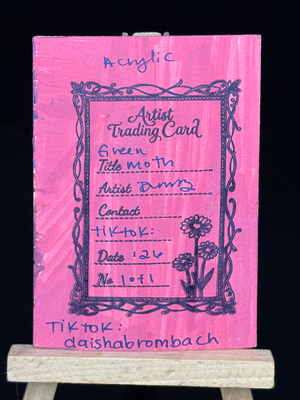 Acrylic
Artist
Trading Card
Green
Title moth
Artist
Contact
TikTok:
Date '26
No 1 of 1
TikTok:
daishabrombach